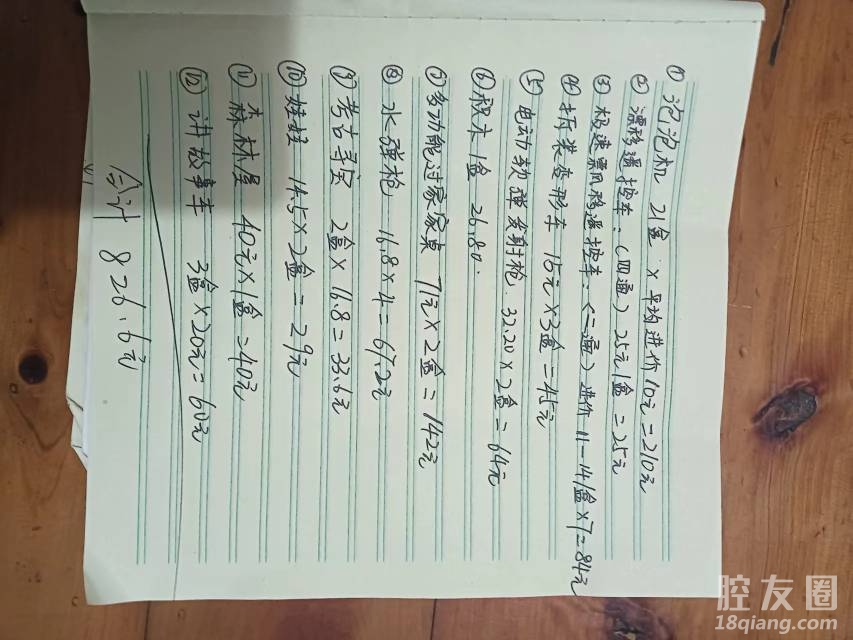 ① 泡泡机 21盒 × 平均进价10元=210元
② 漂移遥控车：（四通）25元1盒=25元
③ 极速票风移遥控车：（二通）进价11-14/盒×7=84元
④ 拆装变形车 15元×3盒=45元
⑤ 电动软弹发射枪 32.20×2盒=64元
⑥ 积木1盒 26.80.
⑦ 多功能过家家桌 71元×2盒=142元
⑧ 水弹枪 16.8×4=67.2元
⑨ 考古寻宝 2盒×16.8=33.6元
⑩ 娃娃 14.5×2盒=29元
⑪ 森林星 40元×1盒=40元
⑫ 讲故事车 3盒×20元=60元
合计 826.6元
腔友圈
18qiang.com